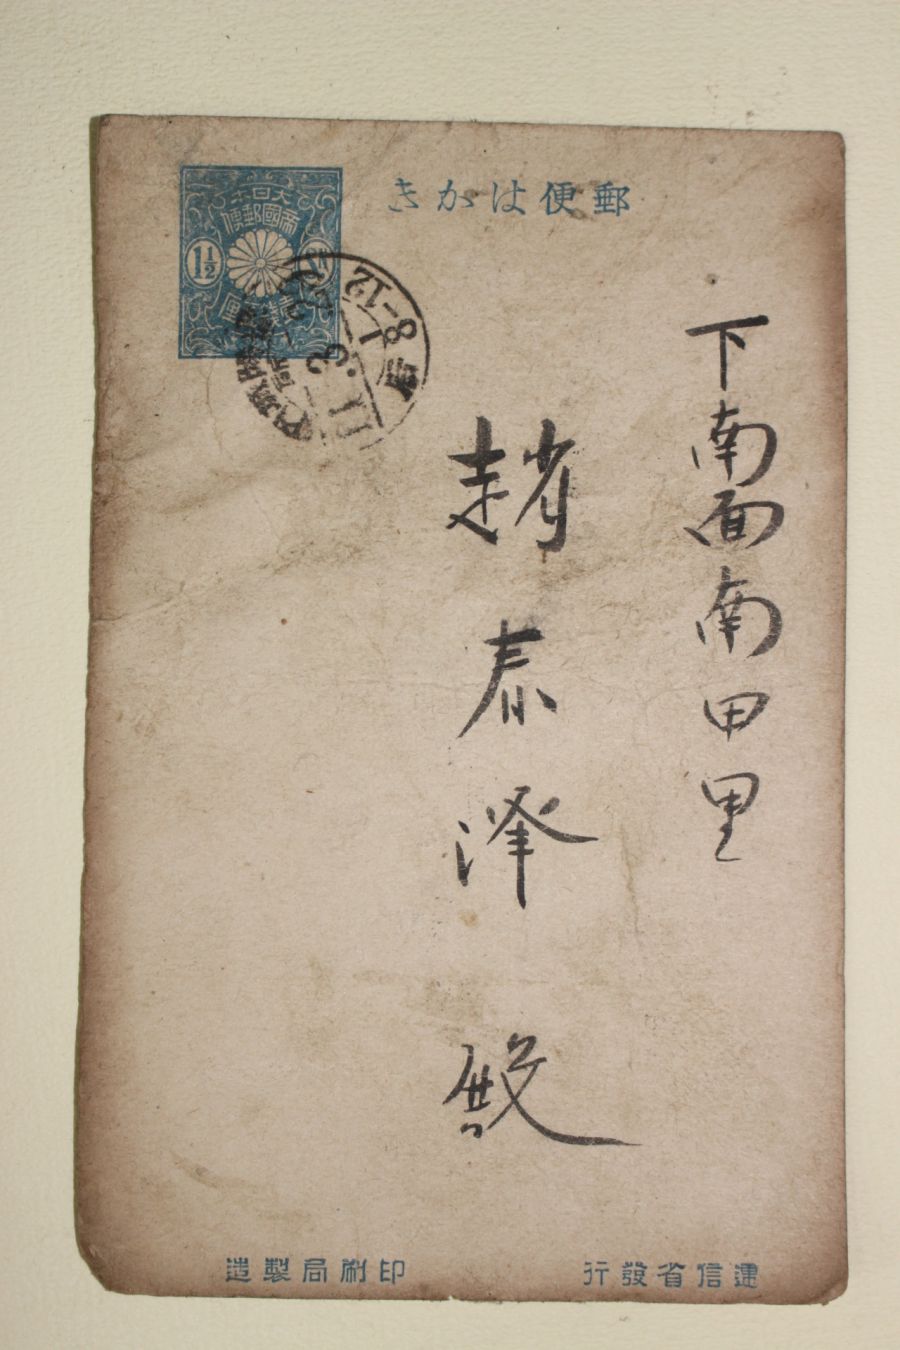 郵便はかき
大日本
帝國郵便
1½
11.3.22
8-12
下南面南田里
趙泰澤殿
逓信省發行
印刷局製造